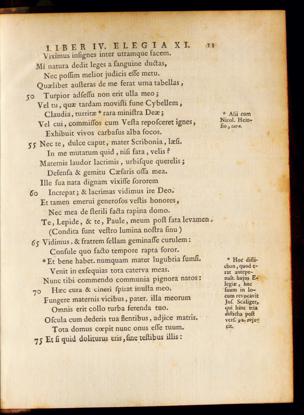 LIBER IV. ELEGIA XI.
Viximus insignes inter utramque facem.
Mi natura dedit leges a sanguine ductas,
Nec possim melior judicis esse metu.
Quælibet austeras de me ferat urna tabellas,
50 Turpior adsessu non erit ulla meo;
Vel tu, quæ tardam movisti fune Cybellem,
Claudia, turritæ * rara ministra Deæ;
Vel cui, commissos cum Vesta reposceret ignes,
Exhibuit vivos carbasus alba focos.
55 Nec te, dulce caput, mater Scribonia, læsi.
In me mutatum quid, nisi fata, velis?
Maternis laudor lacrimis, urbisque querelis;
Defensa & gemitu Cæsaris ossa mea.
Ille sua nata dignam vixisse sororem
60 Increpat; & lacrimas vidimus ire Deo.
Et tamen emerui generosos vestis honores,
Nec mea de sterili facta rapina domo.
Te, Lepide, & te, Paule, meum post fata levamen.
(Condita sunt vestro lumina nostra sinu)
65 Vidimus. & fratrem sellam geminasse curulem:
Consule quo facto tempore rapta soror.
* Et bene habet. numquam mater lugubria sumsi.
Venit in exsequias tota caterva meas.
Nunc tibi commendo communia pignora natos:
70 Hæc cura & cineri spirat inusta meo.
Fungere maternis vicibus, pater. illa meorum
Omnis erit collo turba ferenda tuo.
Oscula cum dederis tua flentibus, adjice matris.
Tota domus cœpit nunc onus esse tuum.
75 Et si quid doliturus eris, sine testibus illis:
* Alii cum
Nicol. Hein-
sio,
* Hoc disti-
chon, quod e-
rat antepe-
nult. hujus E-
legiæ, huc
suum in lo-
cum revocavit
Jos. Scaliger,
qui hinc tria
disticha post